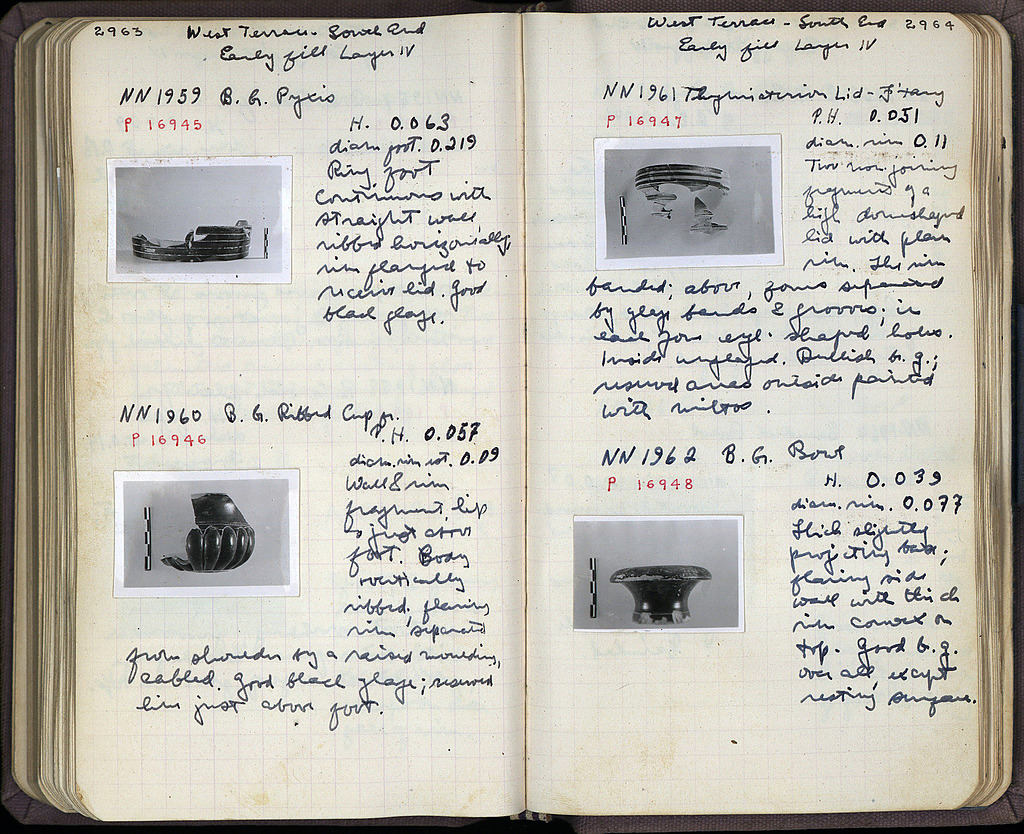 2963 West Terrace - South End
Early fill Layer IV
NN 1959 B. G. Pyxis
P 16945
H. 0.063
diam. foot. 0.219
Ring foot
continuous with
straight wall,
ribbed horizontally,
rim flanged to
receive lid. Good
black glaze.
NN 1960 B. G. Ribbed Cup fr.
P 16946
P. H. 0.057
diam. rim est. 0.09
Wall & rim
fragment, lip
to just above
foot. Body
vertically
ribbed, flaring
rim separated
from shoulder by a raised moulding,
cabled. Good black glaze; reserved
line just above foot.
West Terrace - South End 2964
Early fill Layer IV
NN 1961 Thymiaterion Lid -
P 16947
P.H. 0.051
diam. rim 0.11
Two non joining
fragments of a
high domeshaped
lid with plain
rim. The rim
banded; above, zones separated
by glaze bands & grooves; in
each zone eye-shaped holes.
Inside unglazed. Dullish b. g.;
reserved areas outside painted
with miltos.
NN 1962 B. G. Bowl
P 16948
H. 0.039
diam. rim. 0.077
Thick slightly
projecting base;
flaring side
wall with thick
rim convex on
top. Good b. g.
over all, except
resting surface.